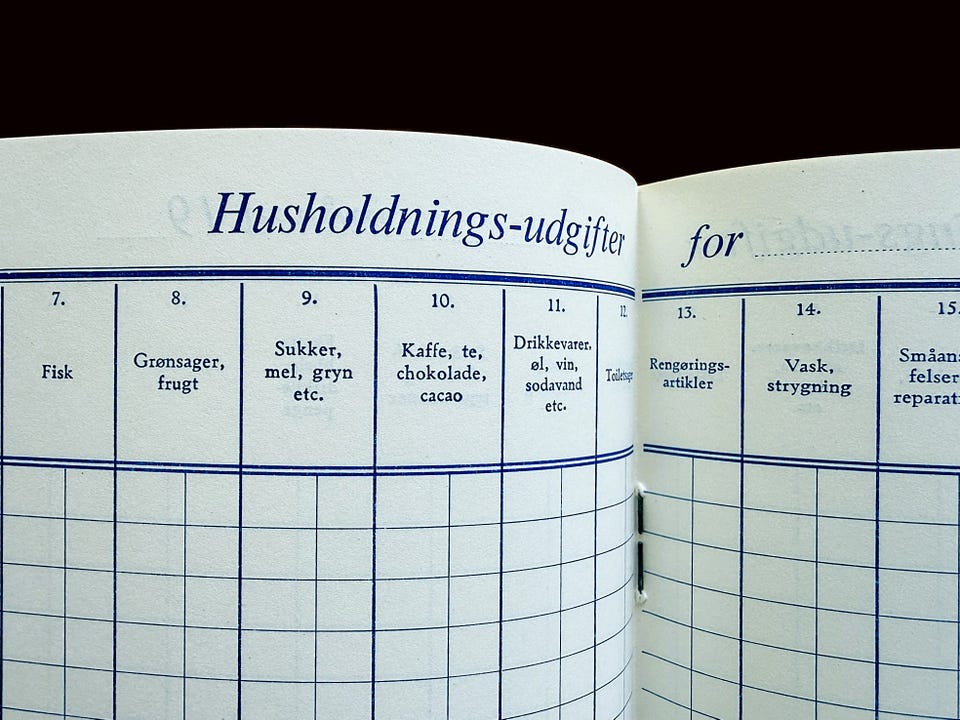 Husholdnings-udgifter for
7.
Fisk
8.
Grønsager,
frugt
9.
Sukker,
mel, gryn
etc.
10.
Kaffe, te,
chokolade,
cacao
11.
Drikkevarer,
øl, vin,
sodavand
etc.
12.
13.
Rengørings-
artikler
14.
Vask,
strygning
15.
Småan
felser
reparat